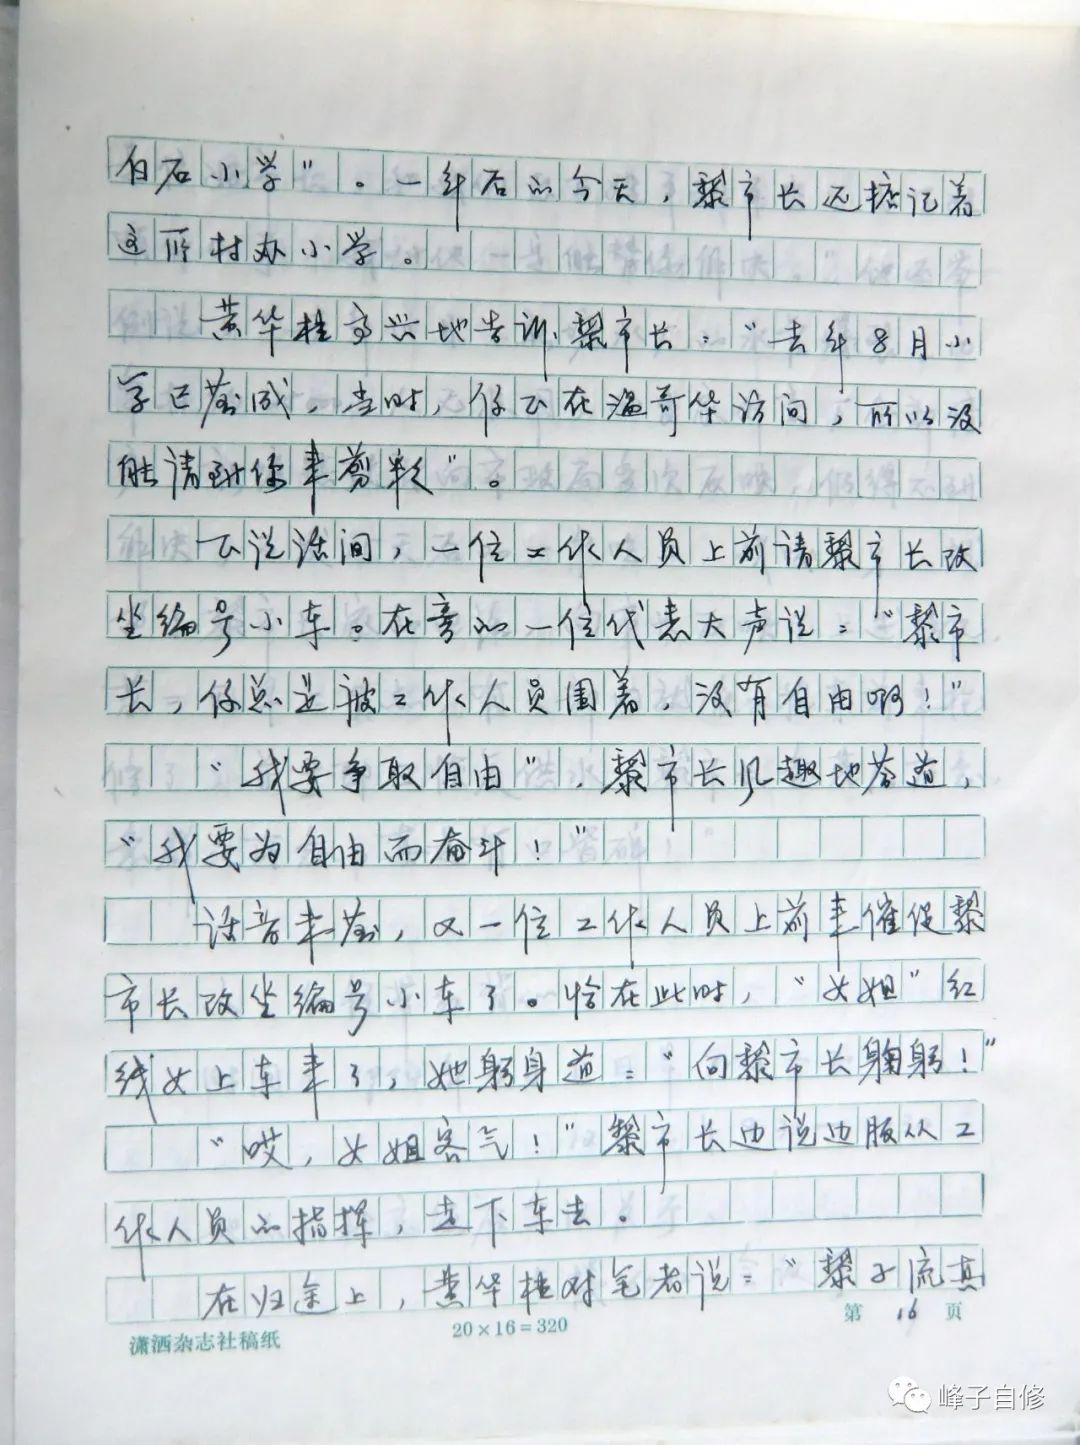 白石小学"。一年后的今天,黎市长还惦记着
这所村办小学。
黄华桂高兴地告诉黎市长:"去年8月小
学已落成,当时,你正在温哥华访问,所以没
能请到您来剪彩"。
正说话间,一位工作人员上前请黎市长改
坐编号小车。在旁的一位代表大声说:"黎市
长,你总是被工作人员围着,没有自由啊!"
"我要争取自由",黎市长风趣地答道,
"我要为自由而奋斗!"
话音未落,又一位工作人员上前来催促黎
市长改坐编号小车了。恰在此时,"女姐"红
线女上车来了,她躬身道:"向黎市长鞠躬!"
"哎,女姐客气!"黎市长边说边服从工
作人员的指挥,走下车去。
在归途上,黄华桂对笔者说:"黎子流真
潇洒杂志社稿纸 20×16=320 第16页
峰子自修